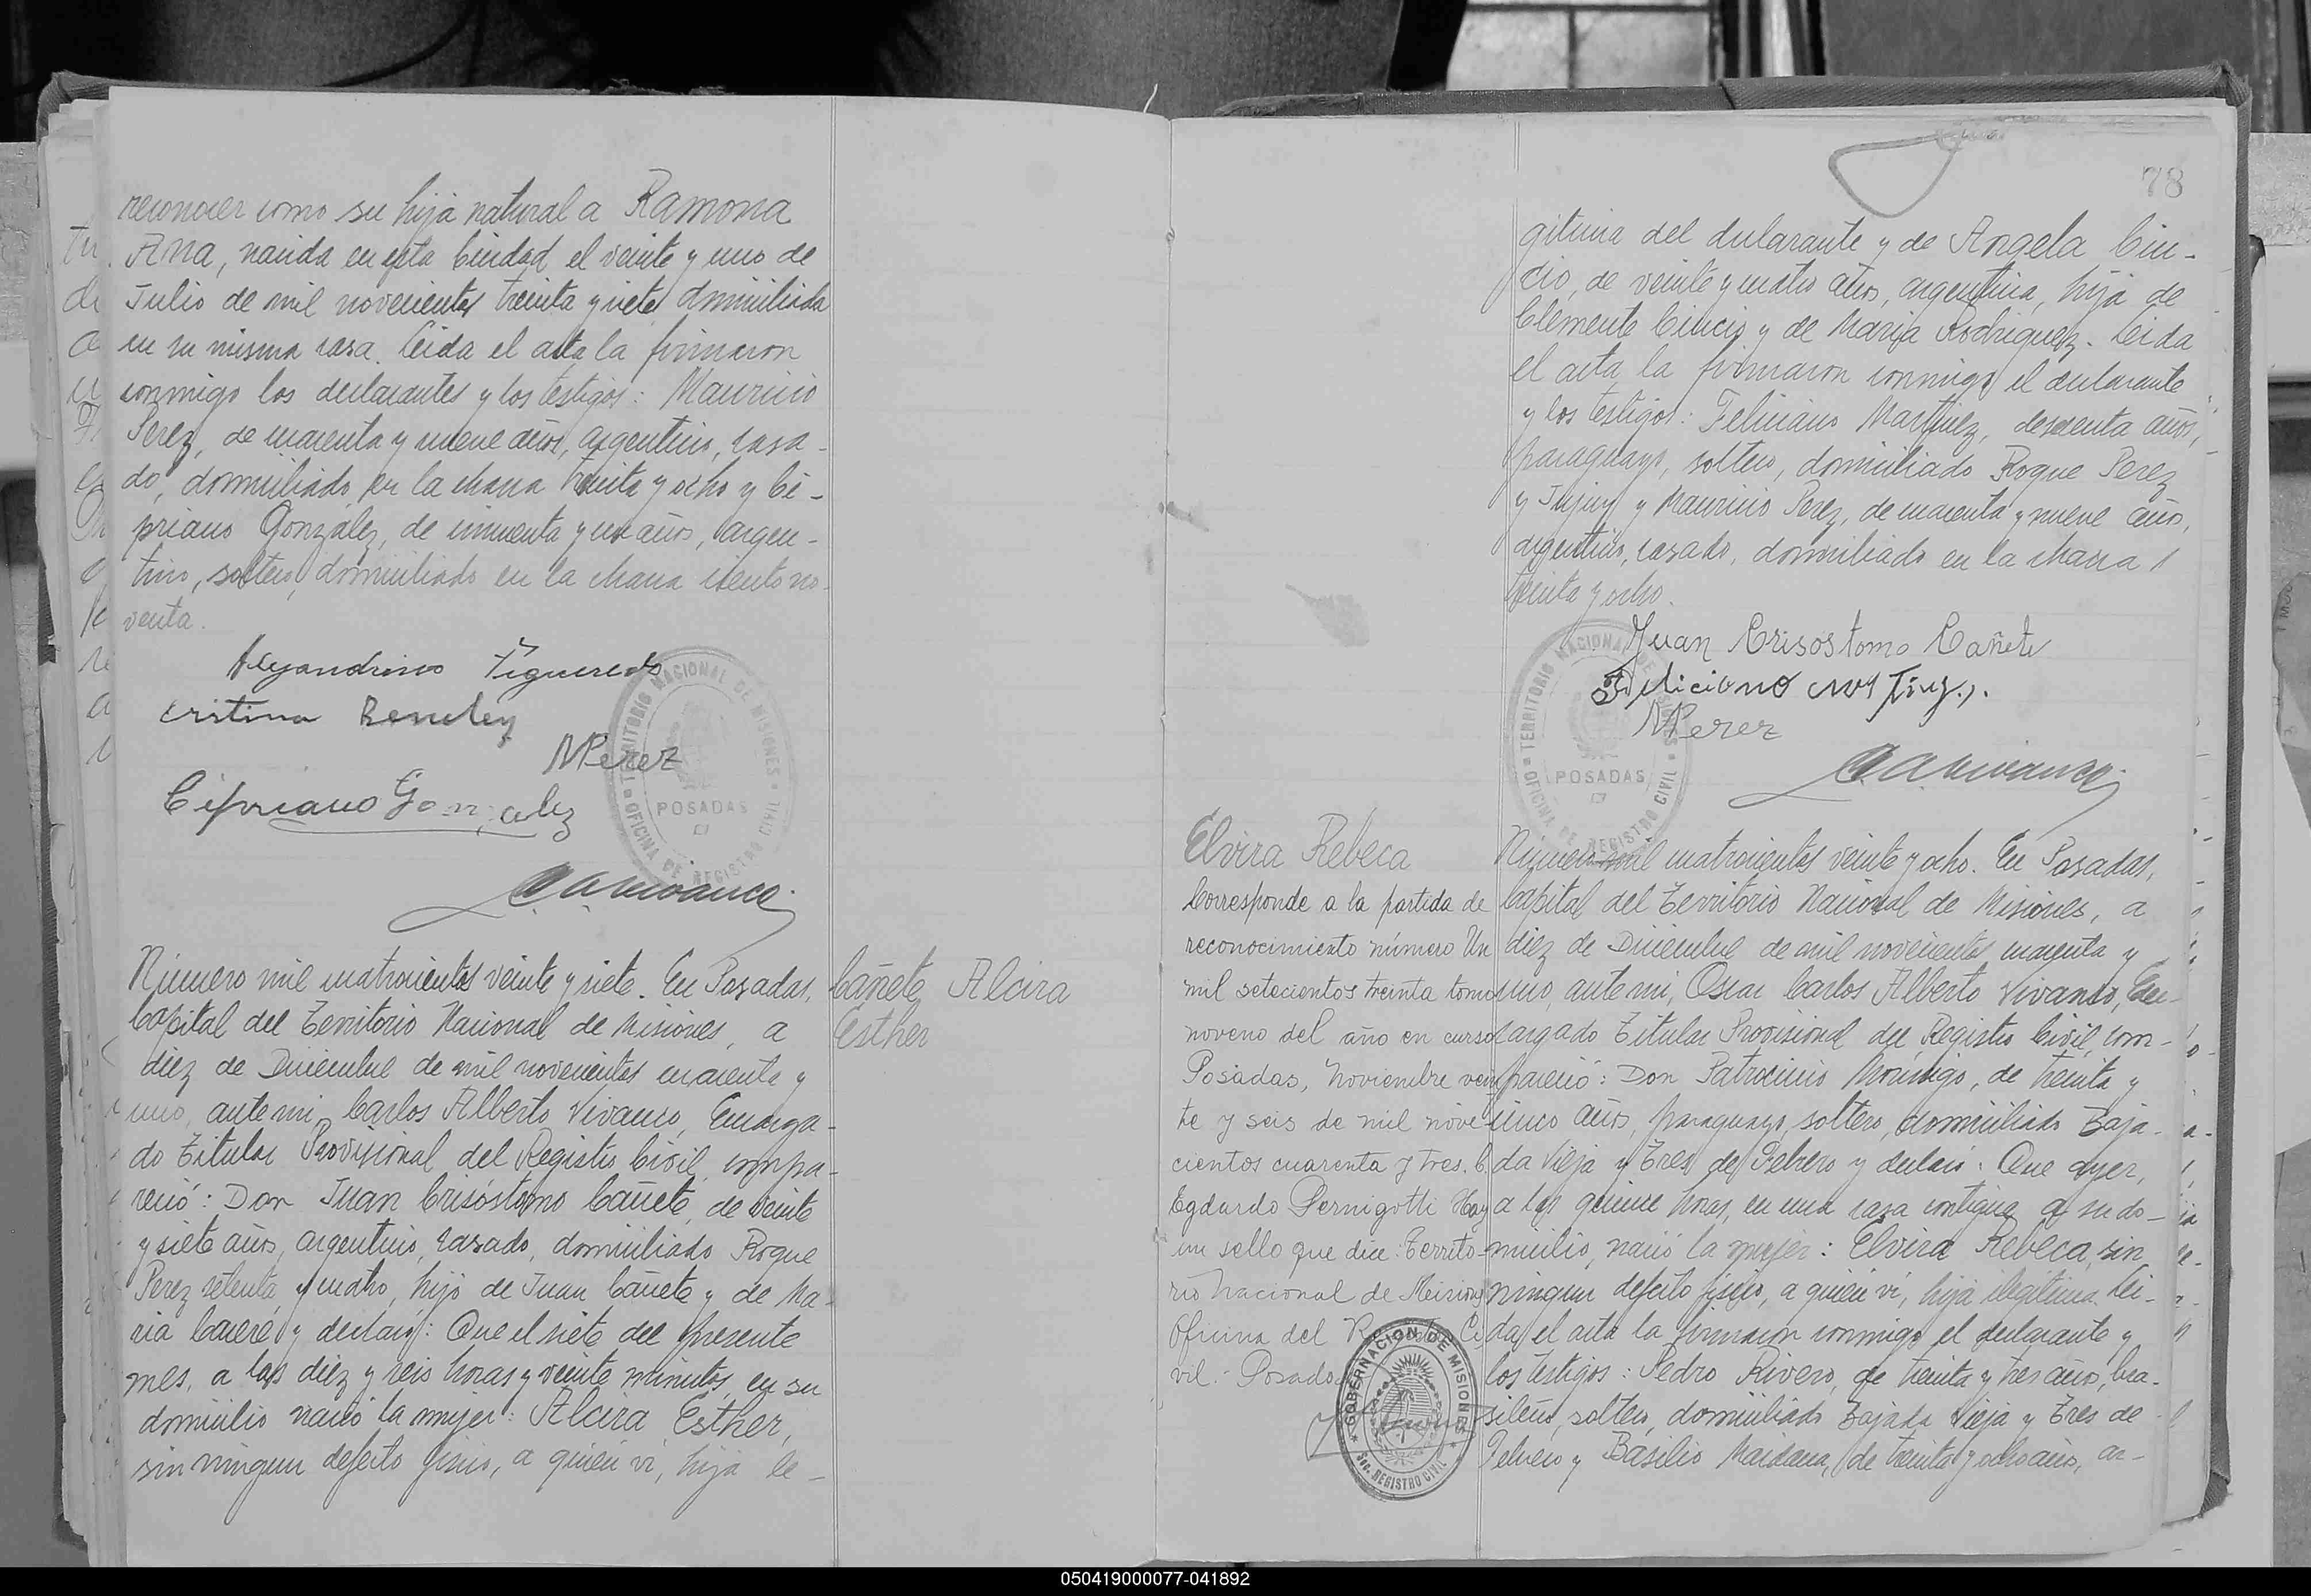 reconocer como su hija natural a Ramona
Ana, nacida en esta Ciudad el veinte y uno de
Julio de mil novecientos treinta y siete domiciliada
en su misma casa. Leida el acta la firmaron
conmigo los declarantes y los testigos: Mauricio
Perez, de cuarenta y nueve años, argentino, casa-
do, domiciliado en la chacra treinta y ocho y Ci-
priano González, de cincuenta y un años, argen-
tino, soltero, domiciliado en la chacra ciento no-
venta.
Alejandrino Figueredo
Cristina
MPerez
Cipriano Gonzalez
TERRITORIO NACIONAL DE MISIONES
OFICINA DE REGISTRO CIVIL
POSADAS
CAVivanco
Número mil cuatrocientos veinte y siete. En Posadas,
Capital del Territorio Nacional de Misiones, a
diez de Diciembre de mil novecientos cuarenta y
uno, ante mi, Carlos Alberto Vivanco, Encarga-
do Titular Provisional del Registro Civil, compa-
reció: Don Juan Crisóstomo Cañete, de veinte
y siete años, argentino, casado, domiciliado Roque
Perez setenta y cuatro, hijo de Juan Cañete y de Ma-
ria y declaró: Que el siete del presente
mes, a las diez y seis horas y veinte minutos, en su
domicilio nació la mujer: Alcira Esther,
sin ningun defecto fisico, a quien vi, hija le-
Cañete Alcira
Esther
78
gitima del declarante y de Angela Cin-
cio, de veinte y cuatro años, argentina, hija de
Clemente Cincio y de Maria Rodriguez. Leida
el acta la firmaron conmigo el declarante
y los testigos: Feliciano Martinez, de sesenta años,
paraguayo, soltero, domiciliado Roque Perez
y Jujuy y Mauricio Perez, de cuarenta y nueve años,
argentino, casado, domiciliado en la chacra
treinta y ocho.
Juan Crisóstomo Cañete
Feliciano Martinez
MPerez
TERRITORIO NACIONAL DE MISIONES
OFICINA DE REGISTRO CIVIL
POSADAS
CAVivanco
Elvira Rebeca
Corresponde a la partida de
reconocimiento número Un
mil setecientos treinta tomo
noveno del año en curso
Posadas, Noviembre vein
te y seis de mil nove
cientos cuarenta y tres.
Egduardo Pernigotti Hay
un sello que dice: Territo-
rio Nacional de Misiones
Oficina del Ci
vil.- Posadas
GOBERNACION DE MISIONES
REGISTRO CIVIL
Número mil cuatrocientos veinte y ocho. En Posadas,
Capital del Territorio Nacional de Misiones, a
diez de Diciembre de mil novecientos cuarenta y
uno, ante mi, Oscar Carlos Alberto Vivanco, En-
cargado Titular Provisional del Registro Civil, com-
pareció: Don Patrocinio Morínigo, de treinta y
cinco años, paraguayo, soltero, domiciliado Baja-
da Vieja y Tres de Febrero y declaró: Que ayer,
a las quince horas, en una casa contigua a su do-
micilio, nació la mujer: Elvira Rebeca, sin
ningun defecto fisico, a quien vi, hija ilegitima. Lei-
da el acta la firmaron conmigo el declarante y
los testigos: Pedro Rivero, de treinta y tres años, bra-
sileño, soltero, domiciliado Bajada Vieja y Tres de
Febrero y Basilio Maidana, de treinta y ocho años, ar-
050419000077-041892